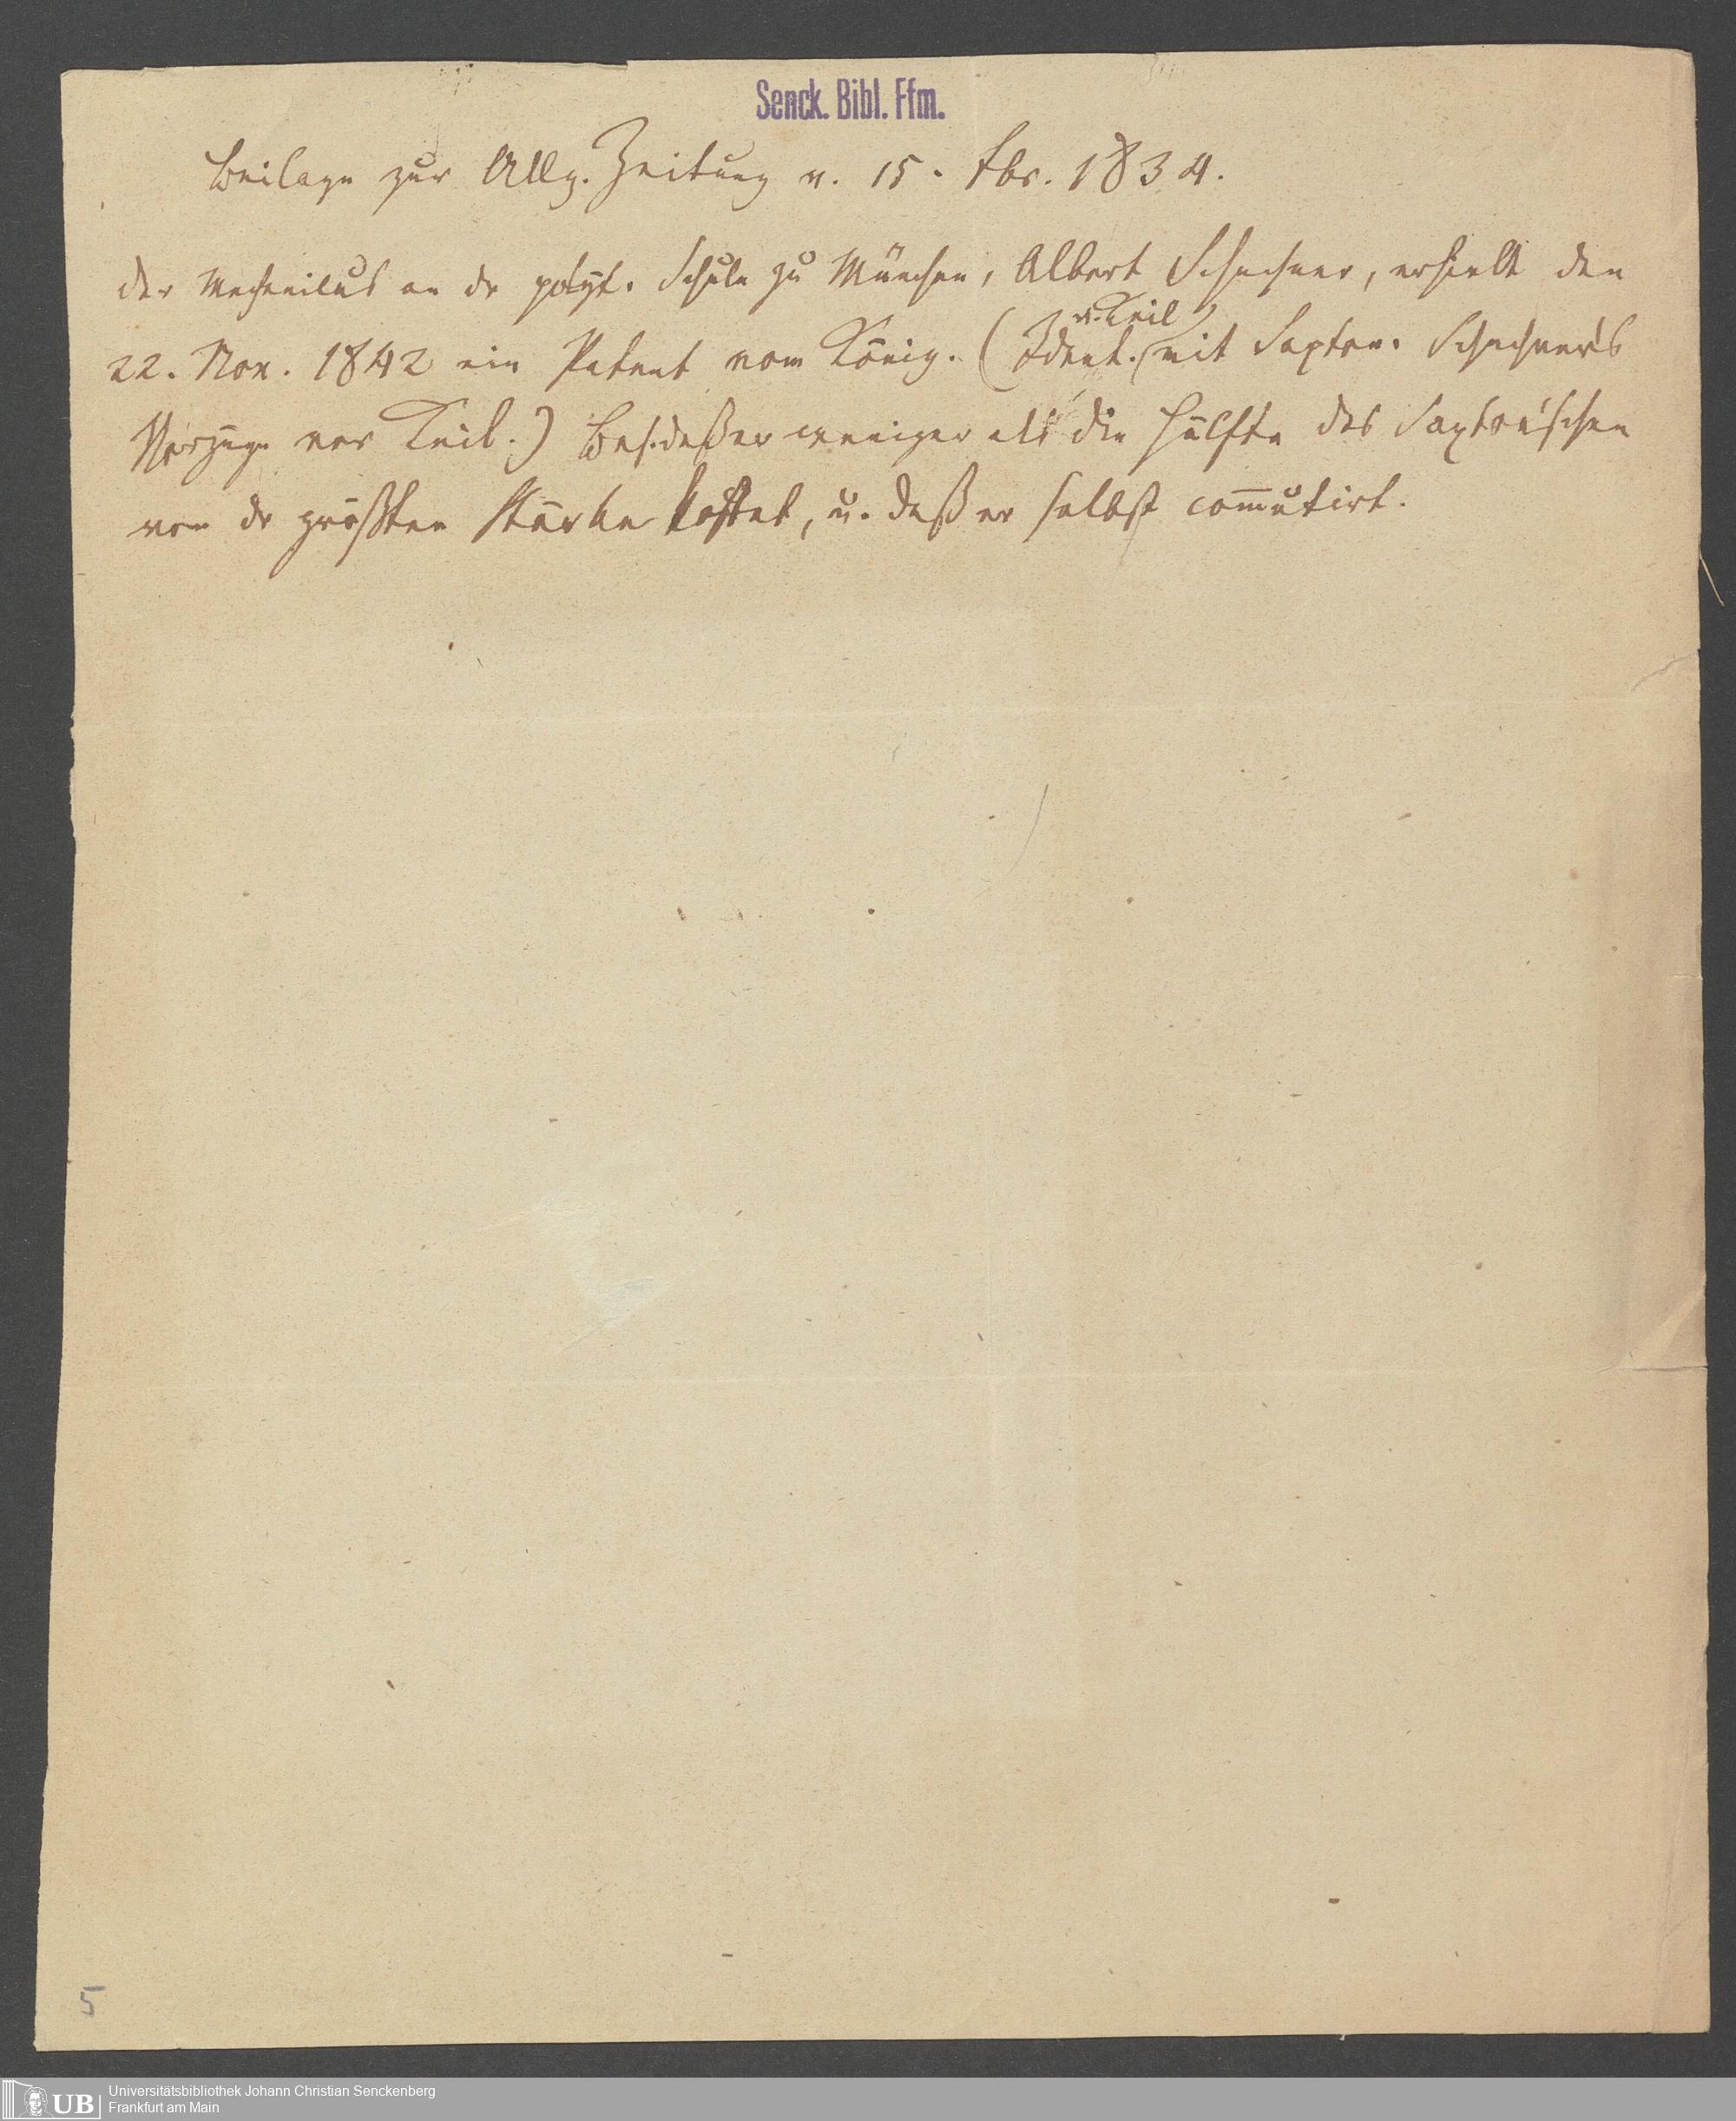 Senck. Bibl. Ffm.
Beilage zur Allg. Zeitung v. 15. Fbr. 1834.
der Mechanikus an dr polyt. Schule zu München, Albert Schechner, erhielt den
v. Keil
22. Nov. 1842 ein Patent vom König. (Ident. mit Saxton. Schechner's
Vorzüge vor Keil.) daß er weniger als die Hälfte des Saxton'schen
von dr größten Stärke kostet, u. daß er selbst com̅utirt.
5
UB
Universitätsbibliothek Johann Christian Senckenberg
Frankfurt am Main